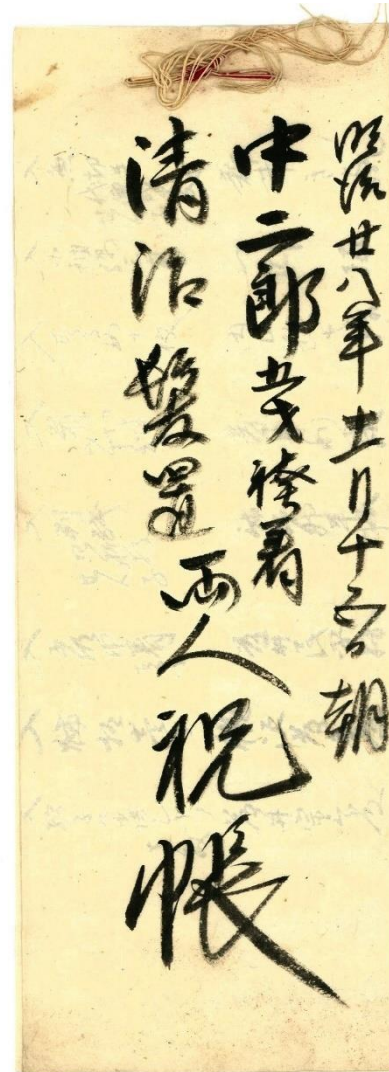 明治廿八年十一月十五日朝
中二郎五才袴着
清治髪置両人祝帳